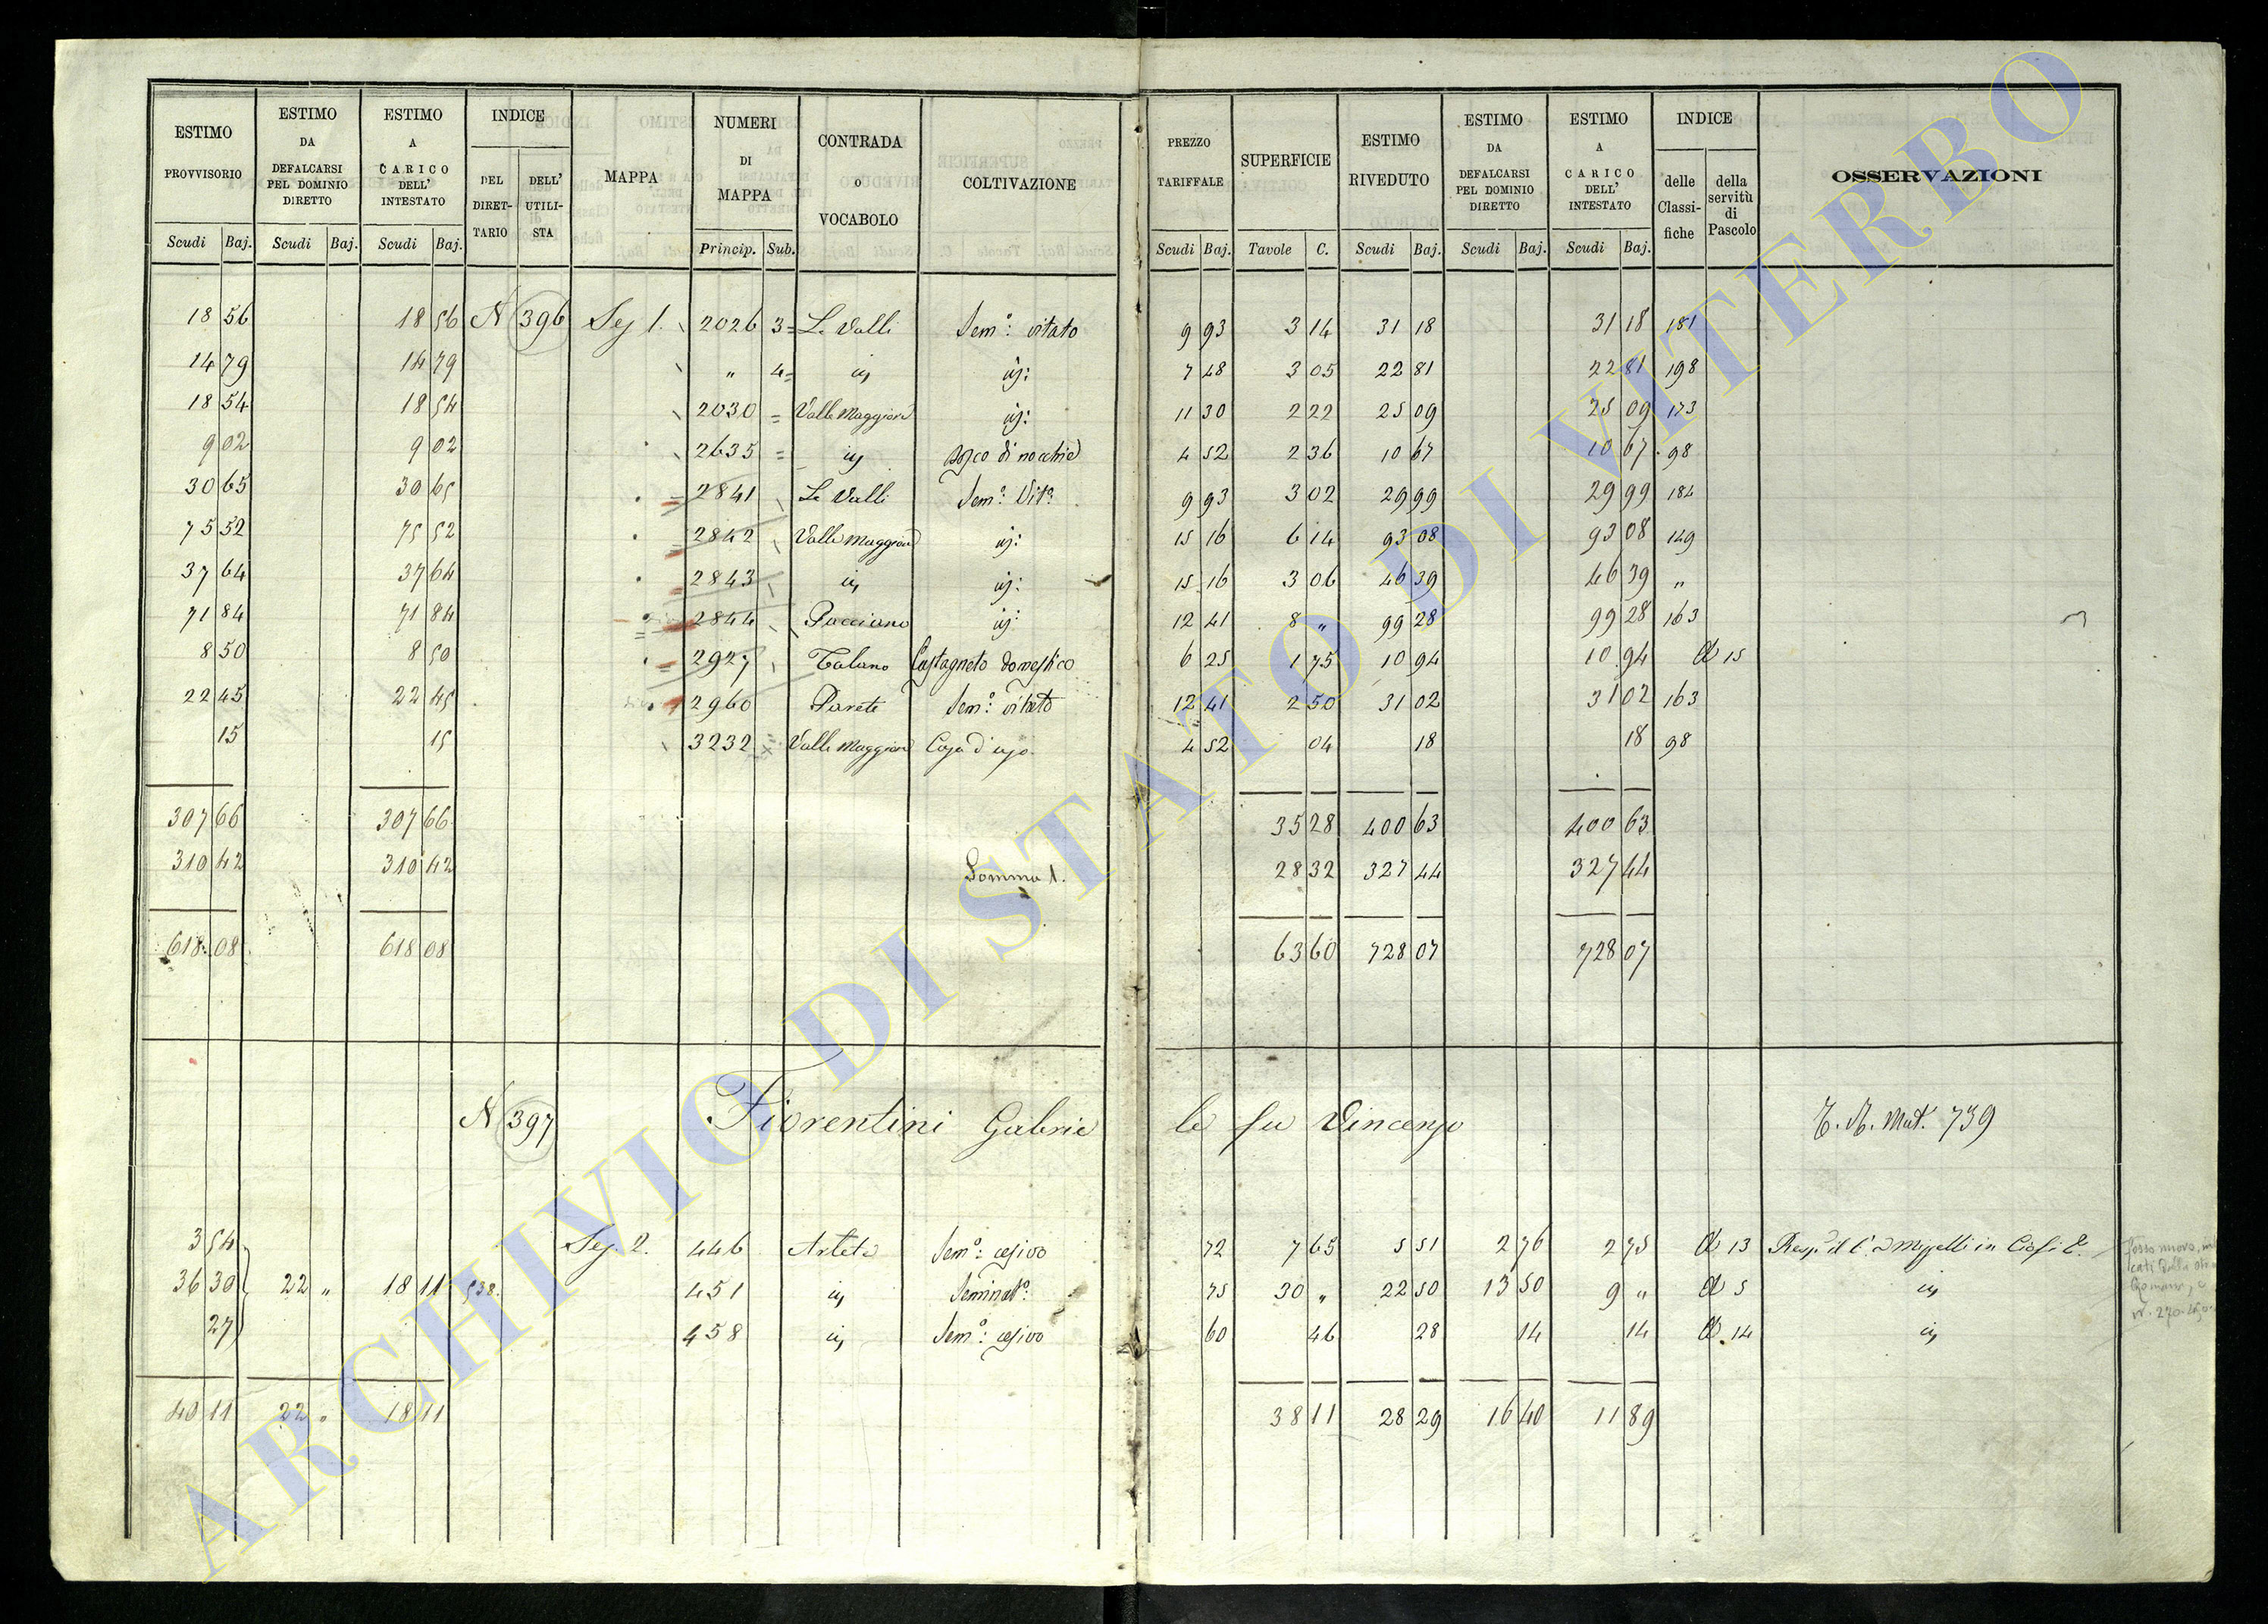 ESTIMO PROVVISORIO Scudi Baj. | ESTIMO DA DEFALCARSI PEL DOMINIO DIRETTO Scudi Baj. | ESTIMO A CARICO DELL' INTESTATO Scudi Baj. | INDICE DEL DIRET-TARIO | DELL' UTILI-STA | MAPPA | NUMERI DI MAPPA Princip. Sub. | CONTRADA o VOCABOLO | COLTIVAZIONE | PREZZO TARIFFALE Scudi Baj. | SUPERFICIE Tavole C. | ESTIMO RIVEDUTO Scudi Baj. | ESTIMO DA DEFALCARSI PEL DOMINIO DIRETTO Scudi Baj. | ESTIMO A CARICO DELL' INTESTATO Scudi Baj. | INDICE delle Classi-fiche | della servitù di Pascolo | OSSERVAZIONI
18 56 18 56 N 396 Sez 1. 2026 3 Le Valli Sem.º: vitato 9 93 3 14 31 18 31 18 181
14 79 14 79 " 4 id id: 7 48 3 05 22 81 22 81 198
18 54 18 54 2030 Valle Maggiore id: 11 30 2 22 25 09 25 09 173
9 02 9 02 2635 id bosco di nocchie 4 52 2 36 10 67 10 67 98
30 65 30 65 2841 Le Valli Sem.º Vit.º 9 93 3 02 29 99 29 99 184
75 52 75 52 2842 Valle Maggiore id: 15 16 6 14 93 08 93 08 149
37 64 37 64 2843 id id: 15 16 3 06 46 39 46 39 "
71 84 71 84 2844 Pacciano id: 12 41 8 " 99 28 99 28 163
8 50 8 50 2927 Talano Castagneto domestico 6 25 1 75 10 94 10 94 15
22 45 22 45 2960 Parete Sem.º: vitato 12 41 2 50 31 02 31 02 163
15 15 3232 Valle Maggiore Casa d'uso. 4 52 04 18 18 98
307 66 307 66 35 28 400 63 400 63
310 42 310 42 Somma 1. 28 32 327 44 327 44
618 08 618 08 63 60 728 07 728 07
N 397 Fiorentini Gabriele fu Vincenzo Mat. 739
3 54 Sez. 2. 446 Arleta Sem.º: olivo 72 7 65 5 51 2 76 2 75 13 in Ciofi
36 30 22 " 18 11 538. 451 id Seminat.º: 75 30 " 22 50 13 50 9 " 5 id
27 458 id Sem.º: olivo 60 46 28 14 14 14 id
40 11 22 " 18 11 38 11 28 29 16 40 11 89
ARCHIVIO DI STATO DI VITERBO